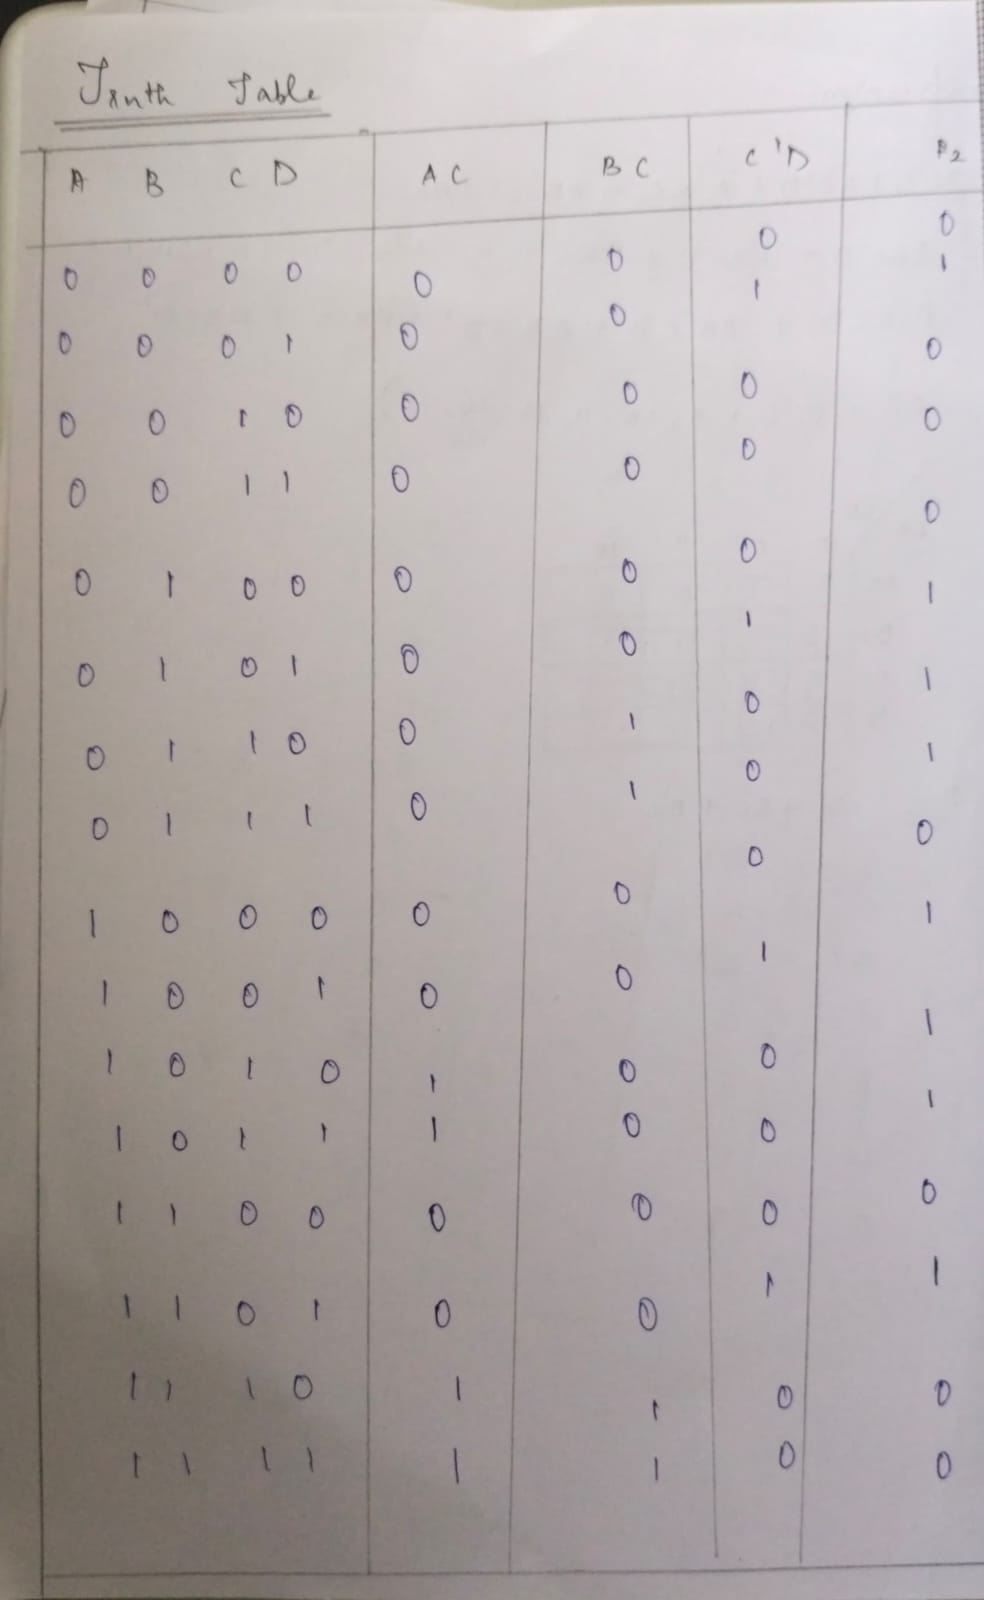 Truth Table
A B C D AC BC C'D F2
0 0 0 0 0 0 0 0
0 0 0 1 0 0 1 1
0 0 1 0 0 0 0 0
0 0 1 1 0 0 0 0
0 1 0 0 0 0 0 0
0 1 0 1 0 0 1 1
0 1 1 0 0 1 0 1
0 1 1 1 0 1 0 1
1 0 0 0 0 0 0 0
1 0 0 1 0 0 1 1
1 0 1 0 1 0 0 1
1 0 1 1 1 0 0 1
1 1 0 0 0 0 0 0
1 1 0 1 0 0 1 1
1 1 1 0 1 1 0 0
1 1 1 1 1 1 0 0